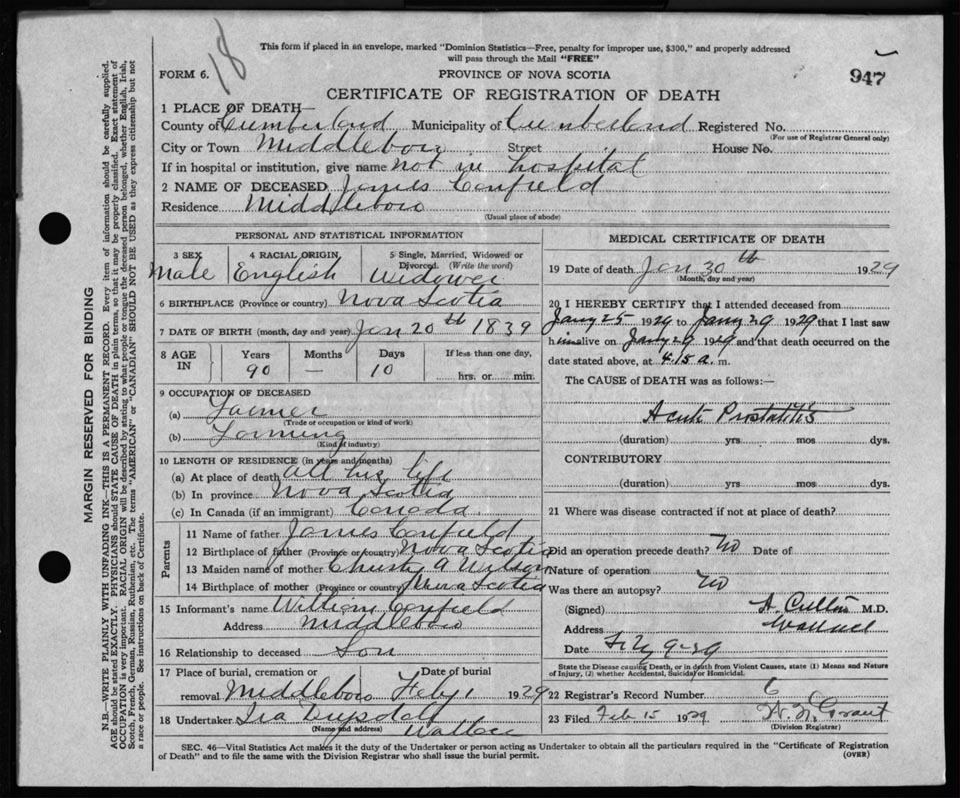 This form if placed in an envelope, marked "Dominion Statistics—Free, penalty for improper use, $300," and properly addressed
will pass through the Mail "FREE"
18
947
FORM 6.
PROVINCE OF NOVA SCOTIA
CERTIFICATE OF REGISTRATION OF DEATH
1 PLACE OF DEATH—
County of Cumberland Municipality of Cumberland Registered No.
(For use of Registrar General only)
City or Town Middleboro Street House No.
If in hospital or institution, give name not in hospital
2 NAME OF DECEASED James Canfield
Residence Middleboro
(Usual place of abode)
PERSONAL AND STATISTICAL INFORMATION
3 SEX 4 RACIAL ORIGIN 5 Single, Married, Widowed or
Divorced. (Write the word)
Male English Widower
6 BIRTHPLACE (Province or country) Nova Scotia
7 DATE OF BIRTH (month, day and year) Jan 20th 1839
8 AGE IN Years Months Days If less than one day,
90 — 10 hrs. or min.
9 OCCUPATION OF DECEASED
(a) Farmer
(Trade of occupation or kind of work)
(b) Farming
(Kind of industry)
10 LENGTH OF RESIDENCE (in years and months)
(a) At place of death all his life
(b) In province Nova Scotia
(c) In Canada (if an immigrant) Canada
Parents
11 Name of father James Canfield
12 Birthplace of father (Province or country) Nova Scotia
13 Maiden name of mother Christy A Wilson
14 Birthplace of mother (Province or country) Nova Scotia
15 Informant's name William Canfield
Address Middleboro
16 Relationship to deceased Son
17 Place of burial, cremation or Date of burial
removal Middleboro Feby 1 1929
18 Undertaker Ira Drysdale
(Name and address) Wallace
MEDICAL CERTIFICATE OF DEATH
19 Date of death Jan 30th 1929
(Month, day and year)
20 I HEREBY CERTIFY that I attended deceased from
Jany 25 1929 to Jany 29 1929 that I last saw
him alive on Jany 29 1929 and that death occurred on the
date stated above, at 4.15 a. m.
The CAUSE of DEATH was as follows:—
Acute Prostatitis
(duration) yrs mos dys.
CONTRIBUTORY
(duration) yrs. mos dys.
21 Where was disease contracted if not at place of death?
Did an operation precede death? No Date of
Nature of operation
Was there an autopsy? No
(Signed) M.D.
Address Wallace
Date Feby 9-29
State the Disease causing Death, or in death from Violent Causes, state (1) Means and Nature
of Injury, (2) whether Accidental, Suicidal or Homicidal.
22 Registrar's Record Number 6
23 Filed Feb 15 1929 Grant
(Division Registrar)
SEC. 46—Vital Statistics Act makes it the duty of the Undertaker or person acting as Undertaker to obtain all the particulars required in the "Certificate of Registration
of Death" and to file the same with the Division Registrar who shall issue the burial permit.
(OVER)
MARGIN RESERVED FOR BINDING
N.B.—WRITE PLAINLY WITH UNFADING INK—THIS IS A PERMANENT RECORD. Every item of information should be carefully supplied.
AGE should be stated EXACTLY. PHYSICIANS should STATE CAUSE OF DEATH in plain terms, so that it may be properly classified. Exact statement of
OCCUPATION is very important. RACIAL ORIGIN will be described by stating to what people or tongue the deceased person belonged, whether English, Irish,
Scotch, French, German, Russian, Ruthenian, etc. The terms "AMERICAN" or "CANADIAN" SHOULD NOT BE USED as they express citizenship but not
a race or people. See instructions on back of Certificate.